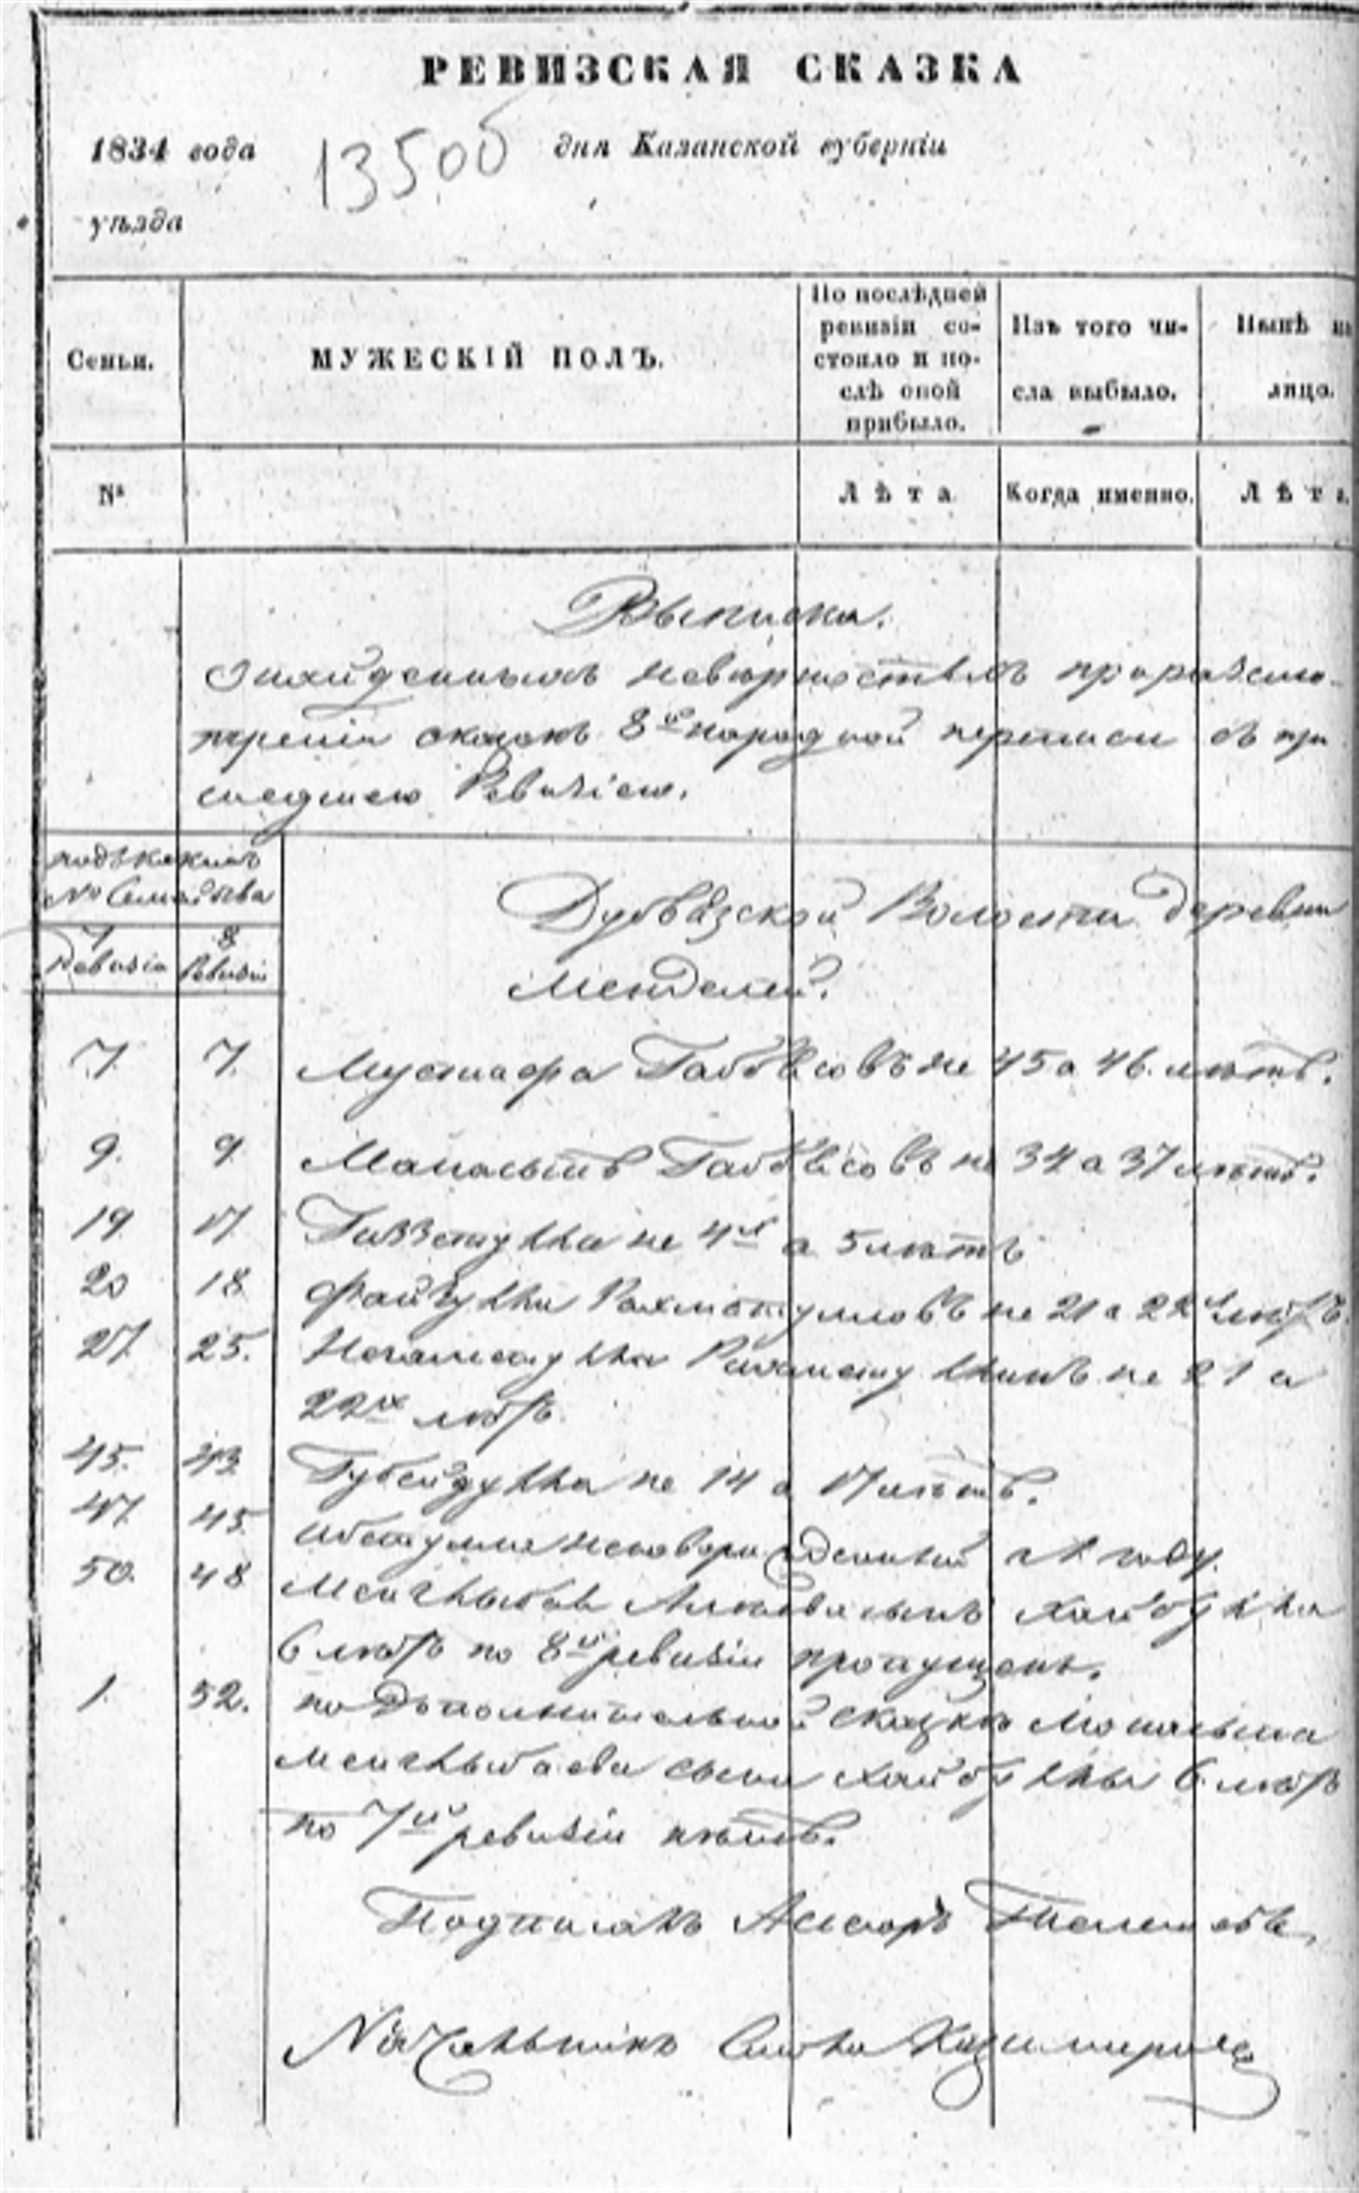 РЕВИЗСКАЯ СКАЗКА
1834 года 13506 дня Казанской губерніи
уѣзда
Семьи.
МУЖЕСКІЙ ПОЛЪ.
По послѣдней ревизіи со-
стояло и по-
слѣ оной
прибыло.
Изъ того чи-
сла выбыло.
Нынѣ на
лицо.
№
Лѣта
Когда именно.
Лѣта
Выписка.
найденнымъ невѣрностямъ при разсмо-
трении сказокъ 8й народной переписи съ пре
шедшею Ревизіею.
подъ какимъ
№ Семейства
7 Ревизіи
8 Ревизіи
Дубъязской Волости деревни
Менделей.
7. 7. Мустафа Габбясовъ не 45 а 46 лѣтъ.
9. 9 Манасыпъ Габбясовъ не 34 а 37 лѣтъ.
19 17 не 4х а 5 лѣтъ
20 18 Файзулла Рахматулловъ не 21 а 22 лѣтъ.
27. 25. Рахматуллинъ не 21 а
22х лѣтъ
45. 43 Губейдулла не 14 а 17 лѣтъ.
47. 45. году.
50. 48 сынъ Хайбулла
6 лѣтъ по 8й ревизіи пропущенъ.
1. 52. по Дополнительной сказкѣ
сына Хайбуллы 6 лѣтъ
по 7й ревизіи нѣтъ.
Подписалъ
Начальникъ